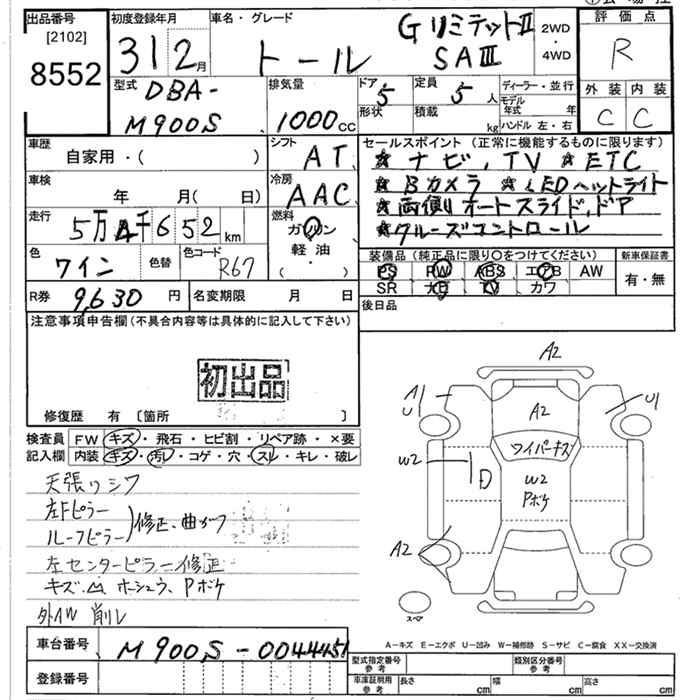 出品番号
[2102]
8552
初度登録年月
31 2月
車名・グレード
トール
GリミテッドII
SAIII
2WD
・
4WD
評価点
R
外装 内装
C C
型式
DBA-
M900S
排気量
1000cc
ドア
5
形状
定員
5人
積載
kg
ディーラー・並行
モデル年式 年
ハンドル 左・右
車歴
自家用・( )
シフト
AT
車検
年 月(日)
冷房
AAC
走行
5万 4千652km
燃料
ガソリン
軽油
( ・ )
色
ワイン
色替
色コード
R67
R券 9,630円
名変期限 月 日
セールスポイント(正常に機能するものに限ります)
★ナビ,TV ★ETC
★Bカメラ ★LEDヘットライト
★両側オートスライドドア
★クルーズコントロール
装備品(純正品に限り○をつけてください)
PS PW ABS エアB AW
SR ナビ TV カワ
新車保証書
有・無
後日品
注意事項申告欄(不具合内容等は具体的に記入して下さい)
初出品
修復歴 有 [箇所 ]
検査員記入欄
FW キズ・飛石・ヒビ割・リペア跡・×要
内装 キズ・汚レ・コゲ・穴・スレ・キレ・破レ
天張りシワ
左Fピラー
ルーフピラー
修正、曲がり
左センターピラー修正
キズ、凹 ホシュウ、Pボケ
外AW 削レ
A2
A2
U1
ワイパーキズ
W2
D
W2
Pボケ
A2
スペア
A－キズ E－エクボ U－凹み W－補修跡 S－サビ C－腐食 XX－交換済
車台番号
M900S-0044451
登録番号
型式指定番号
参考
類別区分番号
参考
車庫証明用
参考
長さ cm
幅 cm
高さ cm